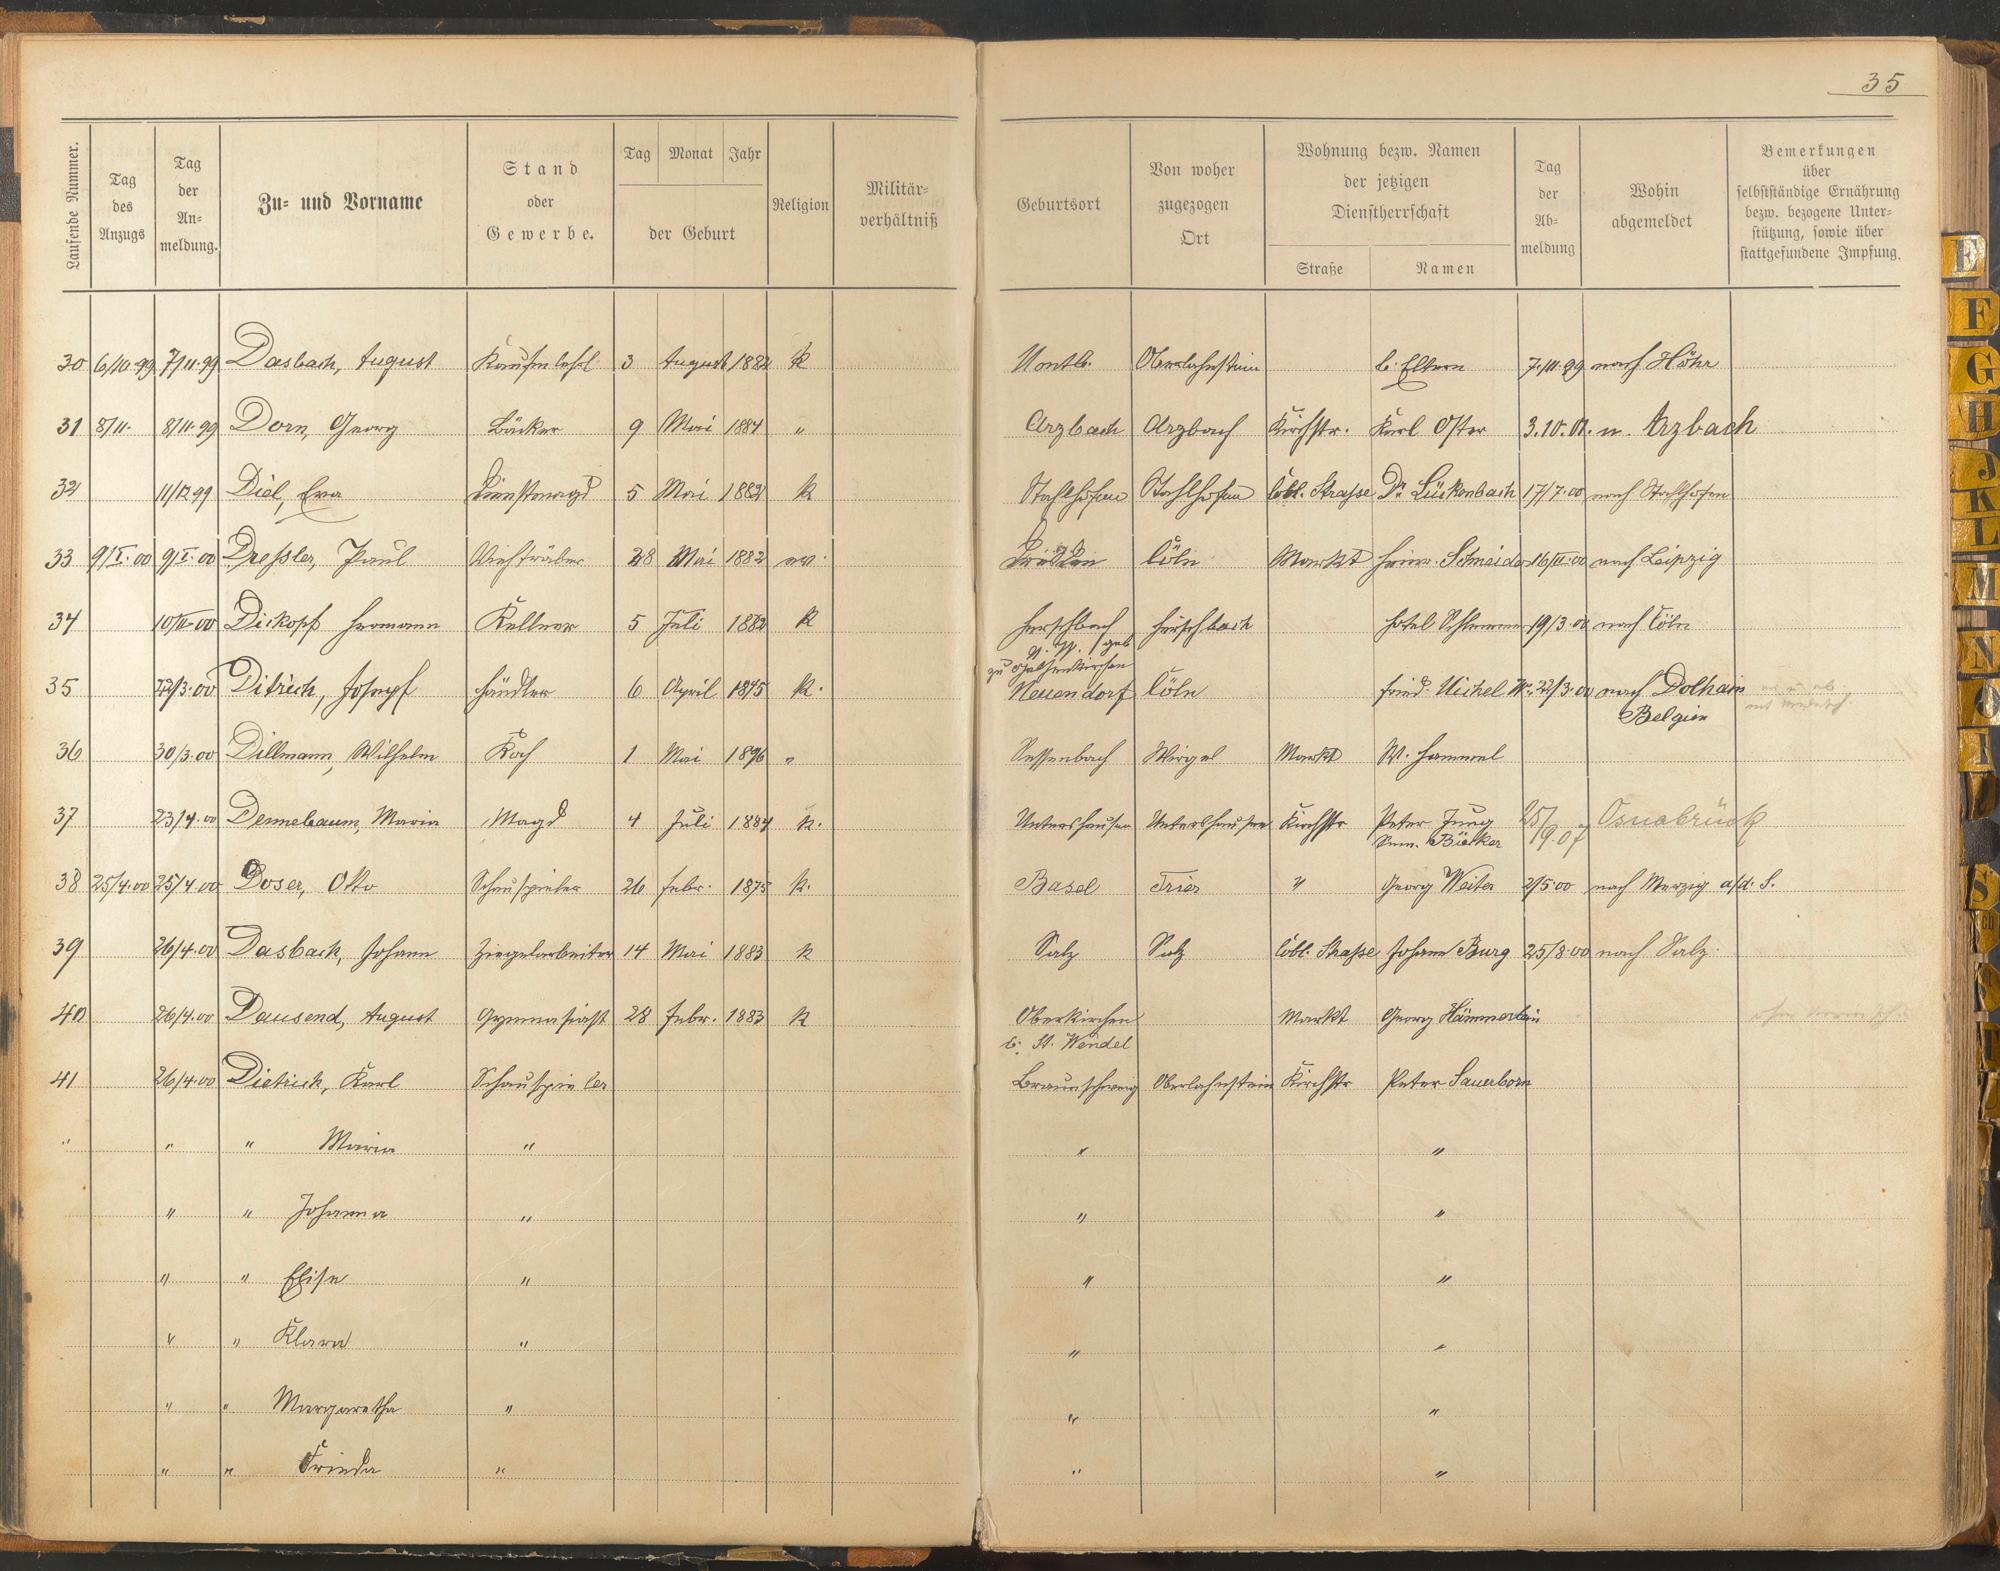 35
Laufende Nummer.
Tag des Anzugs
Tag der An-meldung.
Zu- und Vorname
Stand oder Gewerbe.
Tag Monat Jahr
der Geburt
Religion
Militär-verhältniß
Geburtsort
Von woher zugezogen Ort
Wohnung bezw. Namen der jetzigen Dienstherrschaft
Straße Namen
Tag der Ab-meldung
Wohin abgemeldet
Bemerkungen über selbstständige Ernährung bezw. bezogene Unter-stützung, sowie über stattgefundene Impfung.
30 6/10.99 7/11.99 Dasbach, August 3 August 1882 K Montb. Oberlahnstein b. Eltern 7/11.99 nach Höhr
31 8/11. 8/11.99 Dorn, Georg Bäcker 9 Mai 1884 " Arzbach Arzbach Kirchstr. Karl Oster 3.10.01. n. Arzbach
32 11/12 99 Diel, Eva Dienstmagd 5 Mai 1882 K Stahlhofen Stahlhofen Cobl. Strasse Dr Lückenbach 17/7.00 nach Stahlhofen
33 9/I.00 9/I.00 Dressler, Paul 28 Mai 1882 ev. Cöln Markt Heinr. Schneider 16/II.00 nach Leipzig
34 10/II.00 Dickopf Hermann Kellner 5 Juli 1882 K Herschbach Herschbach Hotel 19/3.00 nach Cöln
zu Gelsenkirchen geb
35 22/3.00 Ditrich, Joseph Händler 6 April 1875 K. Neuendorf Cöln Fried. Michel W. 22/3.00 nach Dolhain
Belgien
36 30/3.00 Dillmann, Wilhelm Koch 1 Mai 1896 " Sessenbach Wirges Markt W. Hammel
37 23/4.00 Dennebaum, Maria Magd 4 Juli 1884 K. Untershausen Untershausen Kirchstr Peter Jung 25/9.07 Osnabrück
Bäcker
38 25/4.00 25/4.00 Doser, Otto Schauspieler 26 Febr. 1875 K. Basel Trier " Georg Weiter 2/5.00 nach Merzig a/d. S.
39 26/4.00 Dasbach, Johann Ziegelarbeiter 14 Mai 1883 K Salz Salz Cobl. Strasse Johann Burg 25/8.00 nach Salz.
40 26/4.00 Dausend, August Gymnasiast 28 Febr. 1883 K Oberkirchen Markt Georg Hämmerlein
b. St. Wendel
41 26/4.00 Dietrich, Karl Schauspieler Braunschweig Oberlahnstein Kirchstr Peter Sauerborn
" " " Maria " " "
" " Johanna " " "
" " Elise " " "
" " Klara " " "
" " Margaretha " " "
" " Frieda " " "
E
F
G
H
J
K
L
M
N
O